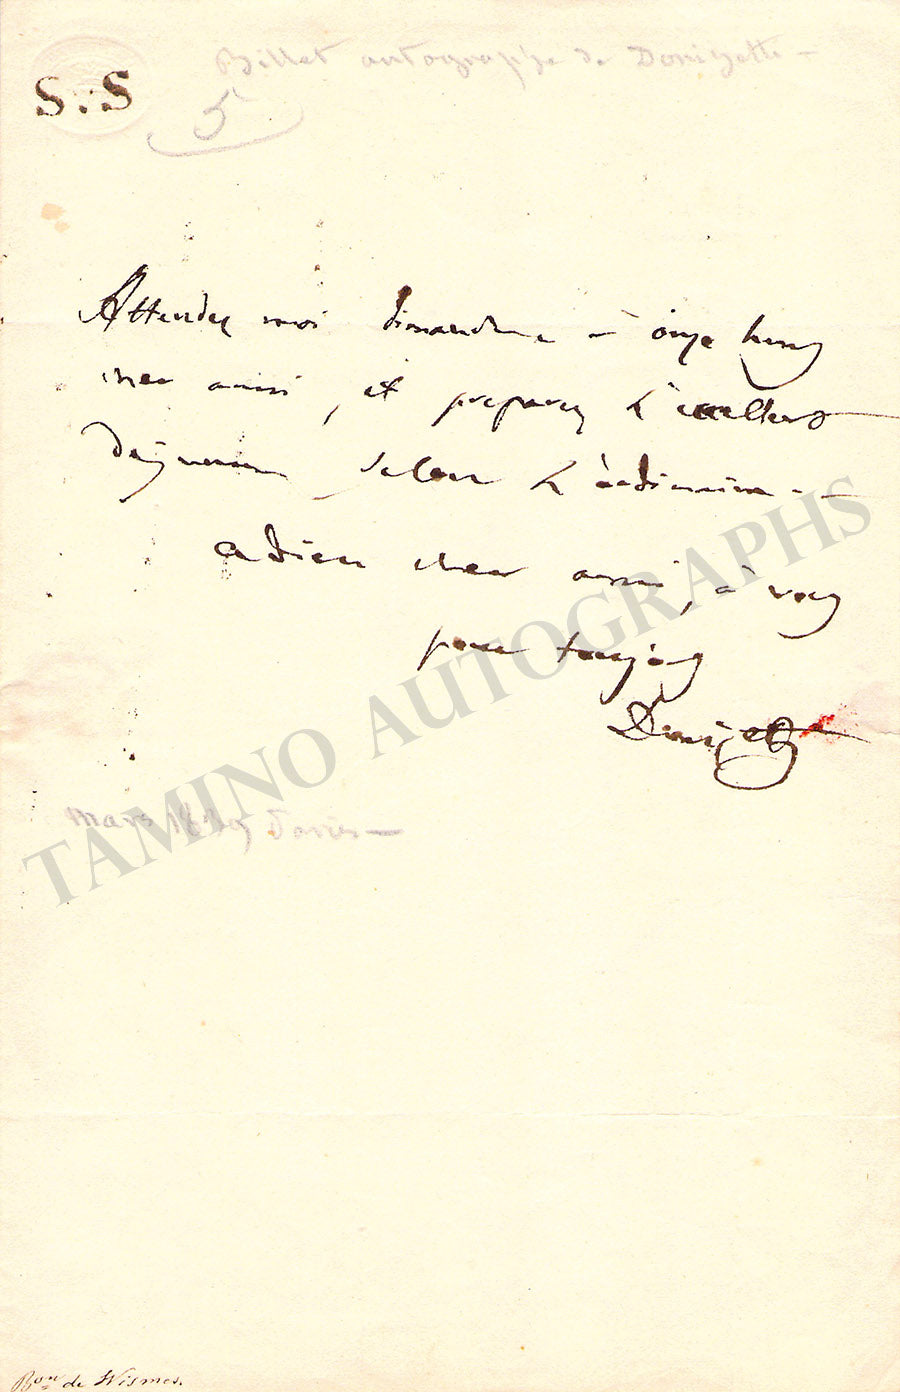 Billet autographe de Donizetti —
S.:S
5
Attendez moi dimanche à onze heures
cher ami, et preparez l'excellent
dejeuner selon l'ordinaire. —
adieu cher ami, à vous
pour toujours
Donizetti
mars Paris —
TAMINO AUTOGRAPHS
Bon de Wismes.